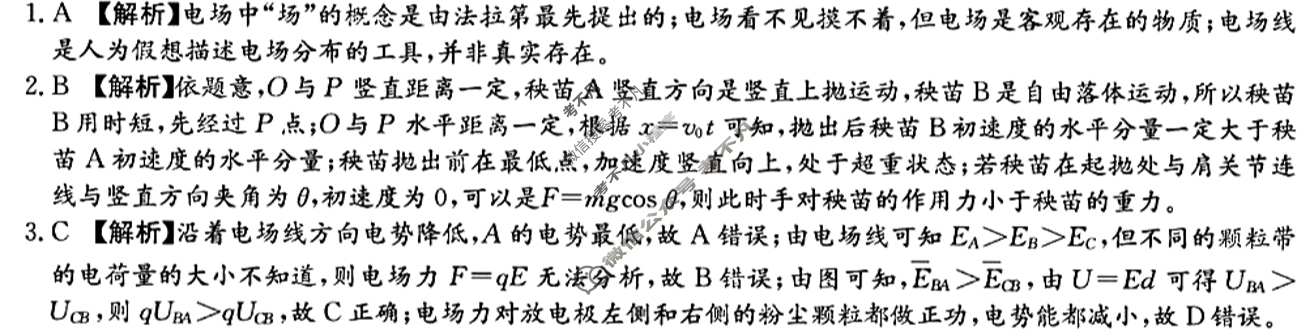 1. A 【解析】电场中“场”的概念是由法拉第最先提出的;电场看不见摸不着,但电场是客观存在的物质;电场线
是人为假想描述电场分布的工具,并非真实存在。
2. B 【解析】依题意,O与P 竖直距离一定,秧苗A 竖直方向是竖直上抛运动,秧苗B是自由落体运动,所以秧苗
B用时短,先经过P点;O与P 水平距离一定,根据 x=v₀t 可知,抛出后秧苗B初速度的水平分量一定大于秧
苗A初速度的水平分量;秧苗抛出前在最低点,加速度竖直向上,处于超重状态;若秧苗在起抛处与肩关节连
线与竖直方向夹角为θ,初速度为0,可以是F=mgcos θ,则此时手对秧苗的作用力小于秧苗的重力。
3. C 【解析】沿着电场线方向电势降低,A的电势最低,故A错误;由电场线可知 E_A>E_B>E_C,但不同的颗粒带
的电荷量的大小不知道,则电场力 F=qE 无法分析,故B错误;由图可知,E̅_BA>E̅_CB,由U=Ed 可得U_BA>
U_CB,则 qU_BA>qU_CB,故C正确;电场力对放电极左侧和右侧的粉尘颗粒都做正功,电势能都减小,故D错误。